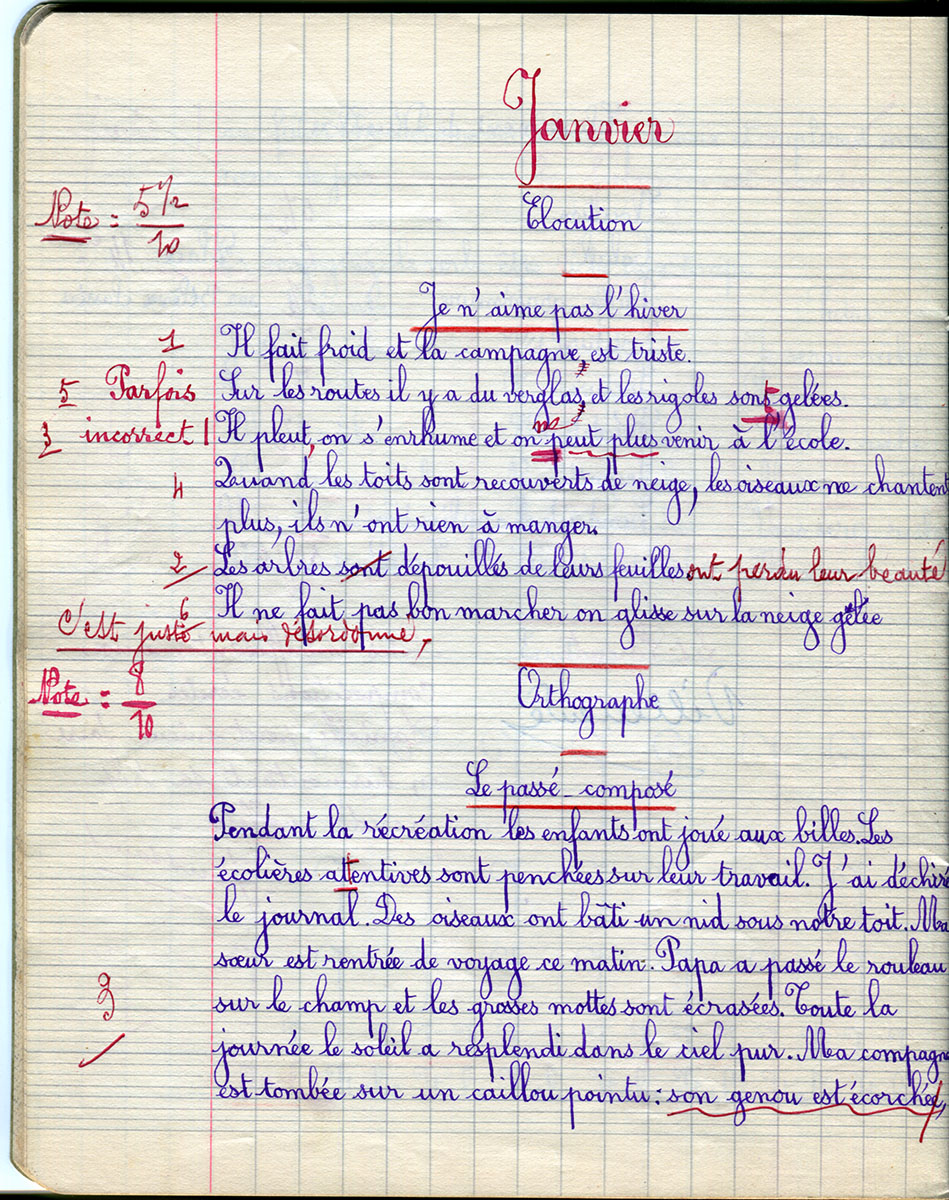 Janvier
Note : 5 1/2 / 10
Elocution
Je n'aime pas l'hiver
1 Il fait froid et la campagne, est triste.
5 Parfois Sur les routes il y a du verglas, et les rigoles sont gelées.
ne
3 incorrect | Il pleut, on s'enrhume et on peut plus venir à l'école.
4 Quand les toits sont recouverts de neige, les oiseaux ne chantent
plus, ils n'ont rien à manger.
2 Les arbres sont dépouillés de leurs feuilles ont perdu leur beauté
6 Il ne fait pas bon marcher on glisse sur la neige gelée
C'est juste mais désordonné,
Note : 8/10
Orthographe
Le passé-composé
Pendant la récréation les enfants ont joué aux billes. Les
écolières attentives sont penchées sur leur travail. J'ai déchiré
le journal. Des oiseaux ont bâti un nid sous notre toit. Ma
sœur est rentrée de voyage ce matin. Papa a passé le rouleau
3 sur le champ et les grosses mottes sont écrasées. Toute la
journée le soleil a resplendi dans le ciel pur. Ma compagne
est tombée sur un caillou pointu : son genou est écorchée,